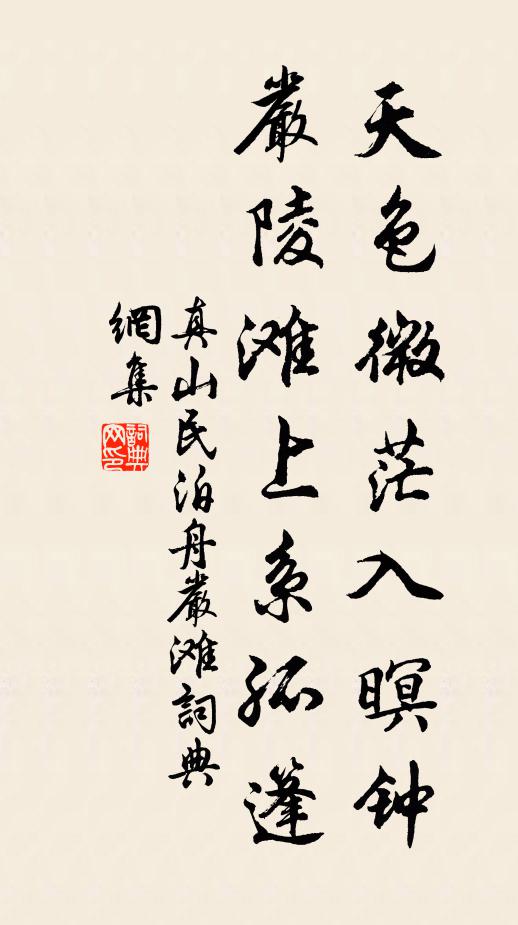 天色微茫入暝钟
嚴陵滩上系孤篷
真山民泊舟嚴滩詞典
網集
詞典网印